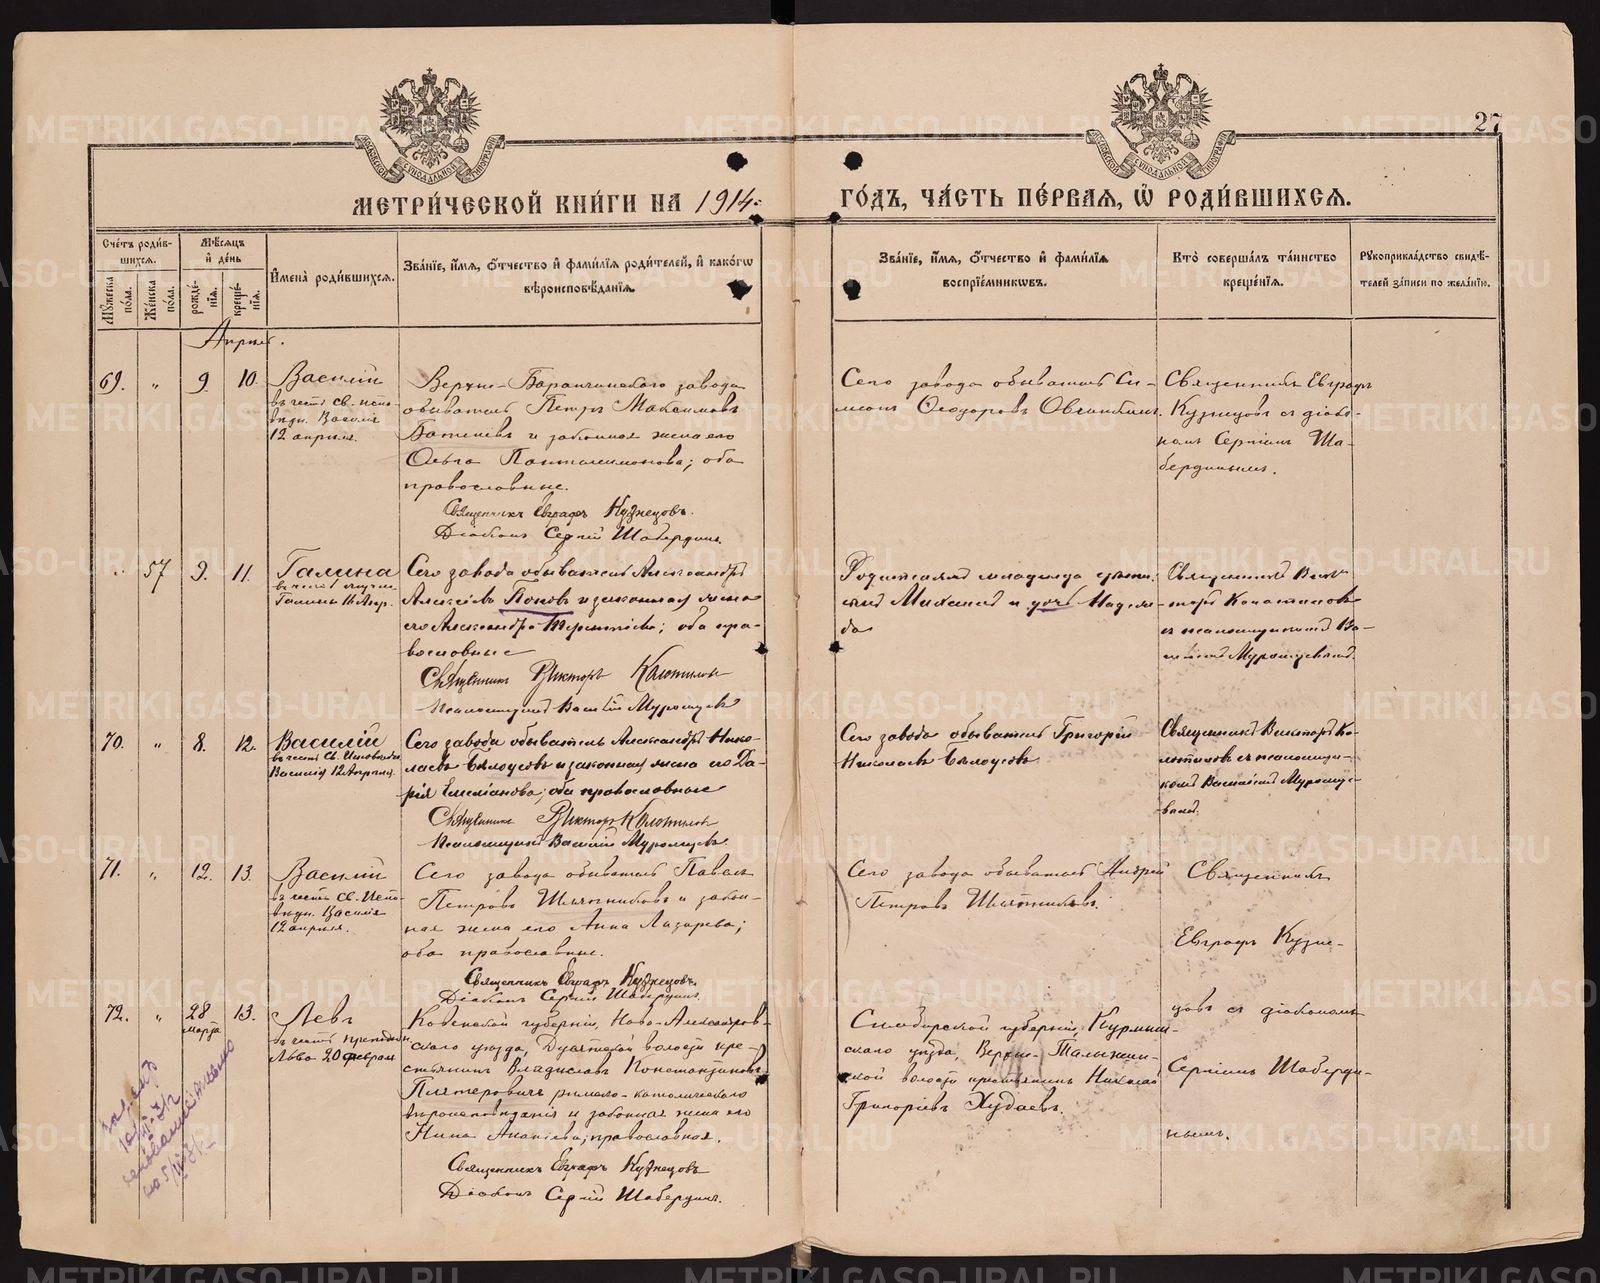 27
МЕТРИ́ЧЕСКОЙ КНИ́ГИ НА 1914
ГО́ДЪ, ЧА́СТЬ ПЕ́РВАЯ, Ѽ РОДИ́ВШИХСЯ.
Сче́тъ роди́в-
шихся.
Мꙋ́жеска
по́ла.
Же́нска
по́ла.
Мѣ́сяцъ
и҆ де́нь
рожде́-
нїя.
креще́-
нїя.
И҆мена̀ роди́вшихся.
Зва́нїе, и҆́мя, ѻ҆́тчество и҆ фами́лїя роди́телей, и҆ како́гѡ
вѣроисповѣ́данїя.
Зва́нїе, и҆́мя, ѻ҆́тчество и҆ фами́лїя
воспрїе́мникѡвъ.
Кто̀ соверша́лъ та́инство
креще́нїя.
Рꙋкоприкла́дство свидѣ́-
телей за́писи по жела́нїю.
Апрѣль.
69. " 9. 10. Василій
въ честь св. испо-
вѣдн. Василія
12 апрѣля.
Верхне-Баранчинскаго завода
обыватель Петръ Максимовъ
Баженовъ и законная жена его
Ольга Панталеимонова; оба
православные.
Священникъ Евграфъ Кузнецовъ.
Діаконъ Сергій Шабердинъ.
Сего завода обыватель Си-
меонъ Ѳеодоровъ Овчинкинъ.
Священникъ Евграфъ
Кузнецовъ съ діако-
номъ Сергіемъ Ша-
бердинымъ.
57 9. 11. Галина
Галины 16 Апр.
Сего завода обыватель Александръ
Алексѣевъ Поповъ и законная жена
его Александра Терентіева; оба пра-
вославные
Священникъ Викторъ Калотиловъ
Псаломщикъ Василій Муромцевъ
Михаилъ и дочь Надеж-
да
Священникъ Вик-
торъ Калотиловъ
съ псаломщикомъ Ва-
силіемъ Муромцевымъ.
70. " 8. 12. Василій
въ честь Св. Исповѣдника
Василія 12 Апрѣля.
Сего завода обыватель Александръ Нико-
лаевъ Бѣлоусовъ и законная жена его Да-
рія Емеліанова; оба православные
Священникъ Викторъ Калотиловъ
Псаломщикъ Василій Муромцевъ
Сего завода обыватель Григорій
Николаевъ Бѣлоусовъ
Священникъ Викторъ Ка-
лотиловъ съ псаломщи-
комъ Василіемъ Муромце-
вымъ.
71. " 12. 13. Василій
въ честь св. Испо-
вѣдн. Василія
12 апрѣля.
Сего завода обыватель Павелъ
Петровъ Шляпниковъ и закон-
ная жена его Анна Лазарева;
оба православные.
Священникъ Евграфъ Кузнецовъ.
Діаконъ Сергій Шабердинъ.
Сего завода обыватель Андрей
Петровъ Шляпниковъ.
Священникъ
Евграфъ Кузне-
72. " 28 марта 13. Левъ
въ честь преподобн.
Льва 20 февраля
Ковенской губерніи, Ново-Александров-
скаго уѣзда, Дусятской волости кре-
стьянинъ Владиславъ Константиновъ
Пиотеровичъ римско-католическаго
вѣроисповѣданія и законная жена его
Нина Ананіева, православная.
Священникъ Евграфъ Кузнецовъ
Діаконъ Сергій Шабердинъ.
Симбирской губерніи, Курмыш-
скаго уѣзда, Верхне-Талызин-
ской волости крестьянинъ Николай
Григоріевъ Худаевъ.
цовъ съ діакономъ
Сергіемъ Шаберди-
нымъ.
METRIKI.GASO-URAL.RU